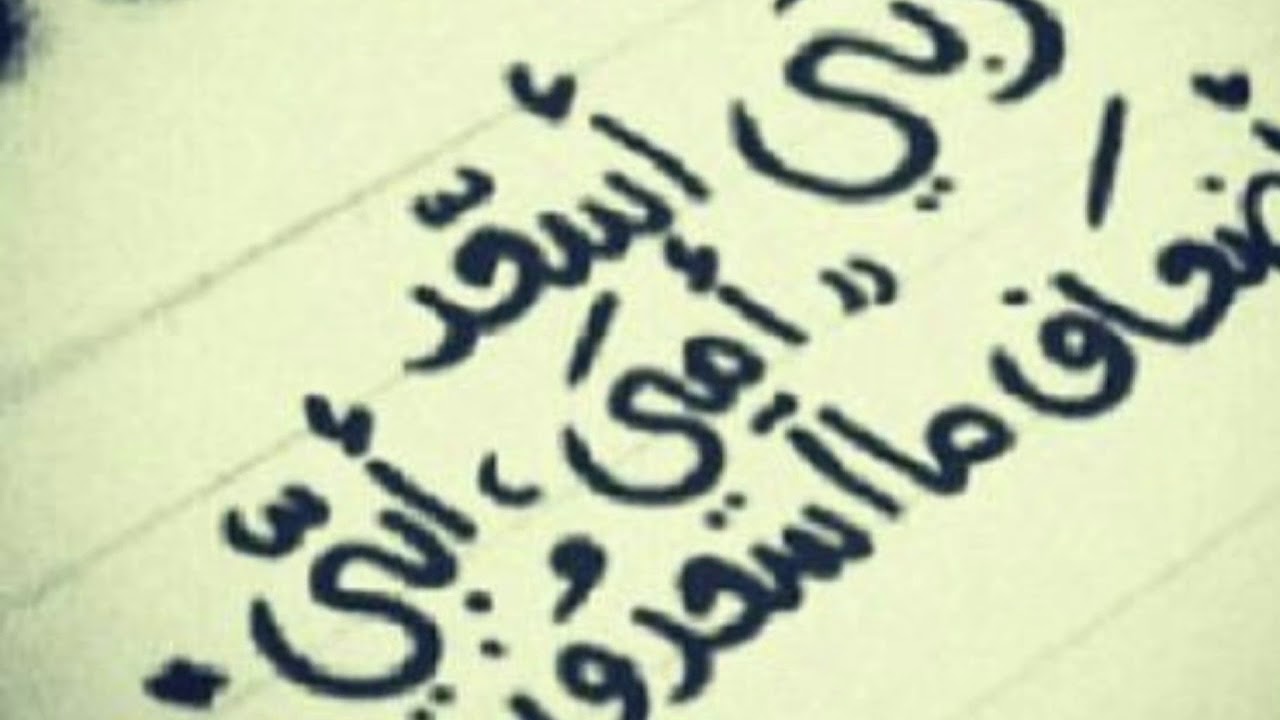 ربي أسعّد
" أمي ، أبّي .
أضعاف ما أسعدو